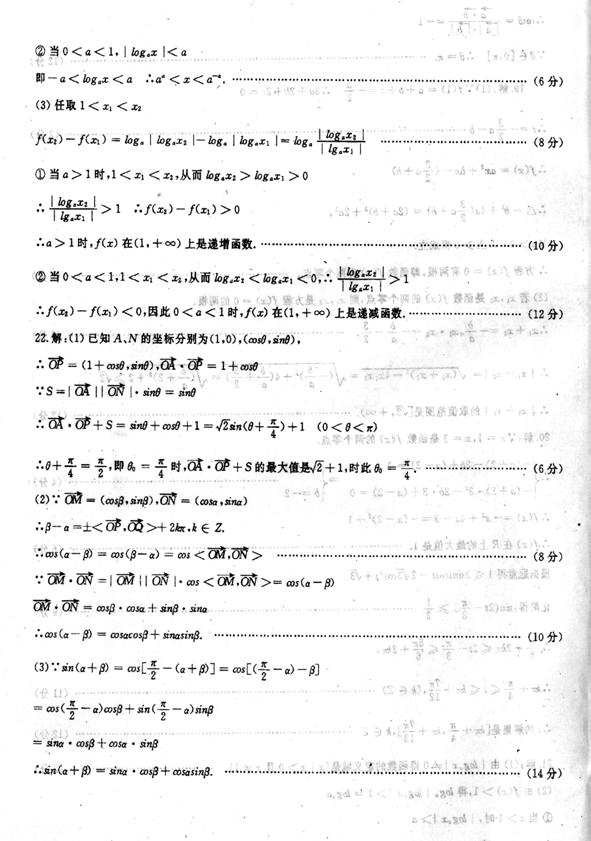 ② 当 0 < a < 1, | logₐx | < a
即 -a < logₐx < a ∴ aᵃ < x < a⁻ᵃ. ………… (6 分)
(3) 任取 1 < x₁ < x₂
f(x₂) - f(x₁) = logₐ | logₐx₂ | - logₐ | logₐx₁ | = logₐ | logₐx₂ | / | lgₐx₁ | ………… (8 分)
① 当 a > 1 时, 1 < x₁ < x₂, 从而 logₐx₂ > logₐx₁ > 0
∴ | logₐx₂ | / | lgₐx₁ | > 1 ∴ f(x₂) - f(x₁) > 0
∴ a > 1 时, f(x) 在 (1, +∞) 上是递增函数. ………… (10 分)
② 当 0 < a < 1, 1 < x₁ < x₂, 从而 logₐx₂ < logₐx₁ < 0, ∴ | logₐx₂ | / | lgₐx₁ | > 1
∴ f(x₂) - f(x₁) < 0, 因此 0 < a < 1 时, f(x) 在 (1, +∞) 上是递减函数. ………… (12 分)
22. 解: (1) 已知 A、N 的坐标分别为 (1,0), (cosθ, sinθ),
∴ OP⃗ = (1 + cosθ, sinθ), OA⃗ · OP⃗ = 1 + cosθ
∵ S = | OA⃗ | | ON⃗ | · sinθ = sinθ
∴ OA⃗ · OP⃗ + S = sinθ + cosθ + 1 = √2sin(θ + π/4) + 1 (0 < θ < π)
∴ θ + π/4 = π/2, 即 θ₀ = π/4 时, OA⃗ · OP⃗ + S 的最大值是 √2 + 1, 此时 θ₀ = π/4. ………… (6 分)
(2) ∵ OM⃗ = (cosβ, sinβ), ON⃗ = (cosα, sinα)
∴ β - α = ± < OP⃗, OQ⃗ > + 2kπ, k ∈ Z.
∴ cos(α - β) = cos(β - α) = cos < OM⃗, ON⃗ > ………… (8 分)
∵ OM⃗ · ON⃗ = | OM⃗ | | ON⃗ | · cos < OM⃗, ON⃗ > = cos(α - β)
OM⃗ · ON⃗ = cosβ · cosα + sinβ · sinα
∴ cos(α - β) = cosαcosβ + sinαsinβ. ………… (10 分)
(3) ∵ sin(α + β) = cos[π/2 - (α + β)] = cos[(π/2 - α) - β]
= cos(π/2 - α)cosβ + sin(π/2 - α)sinβ
= sinα · cosβ + cosα · sinβ
∴ sin(α + β) = sinα · cosβ + cosαsinβ. ………… (14 分)